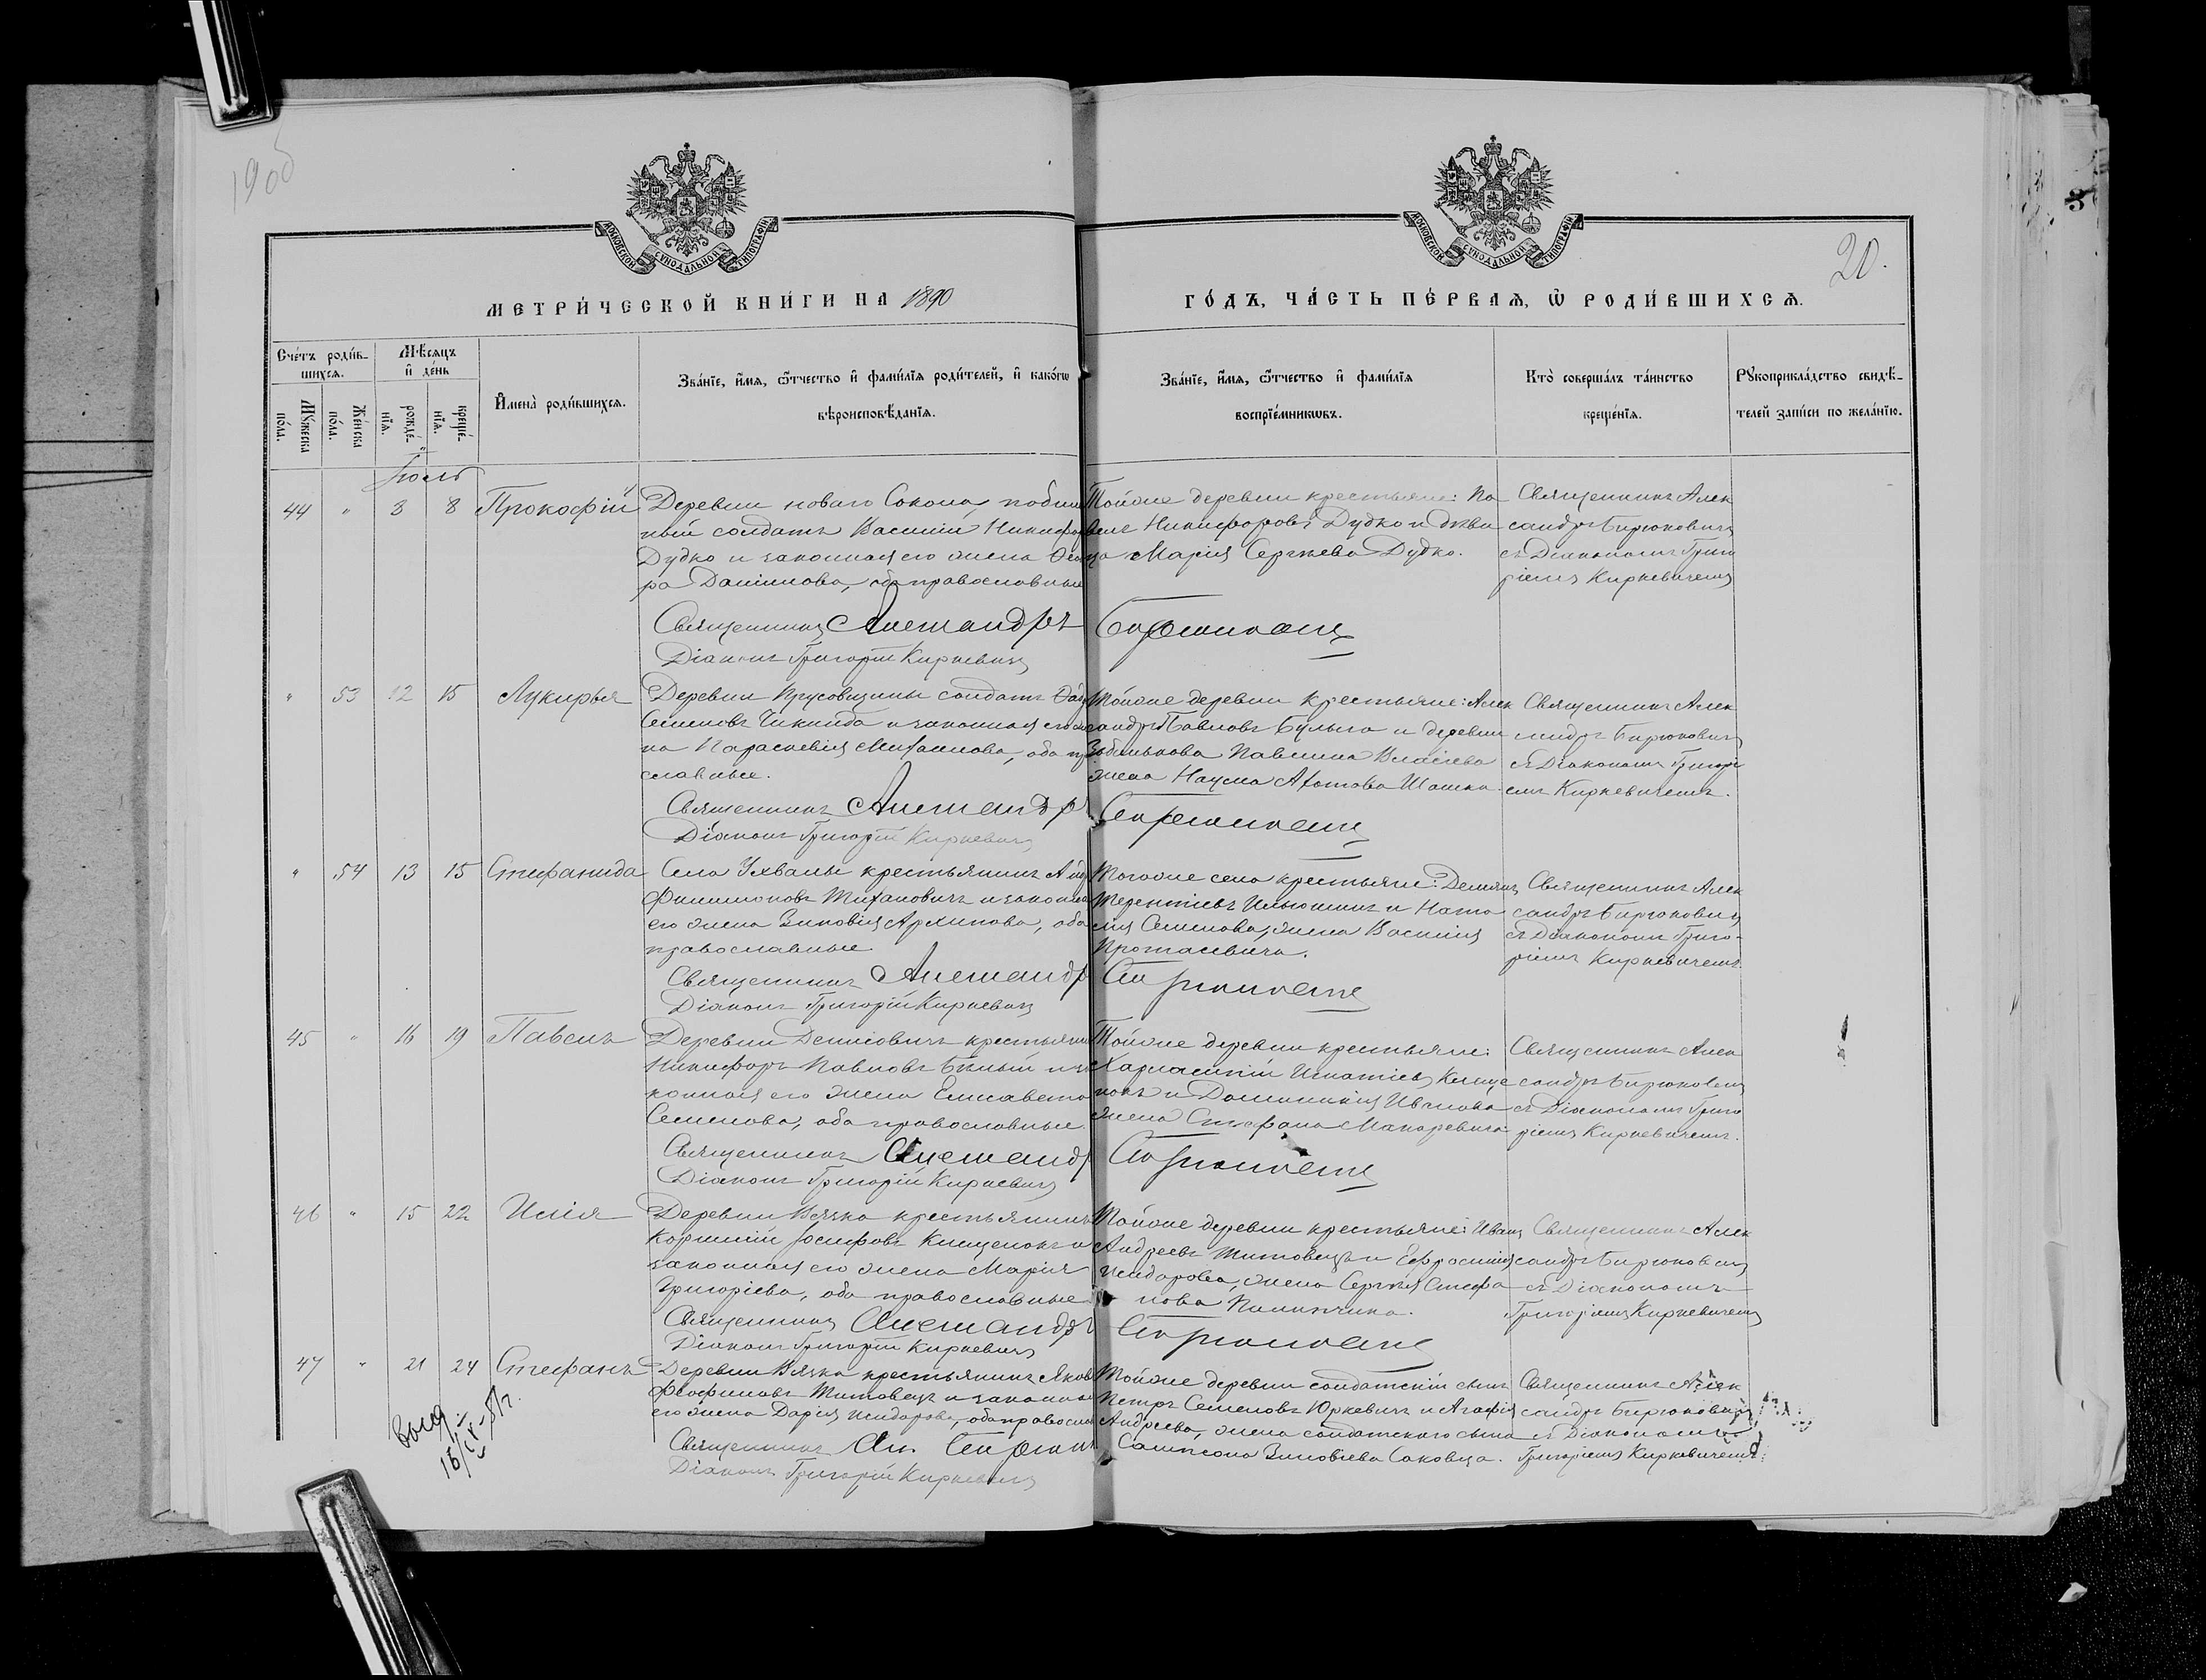 1906
20.
МОСКОВСКОЙ СѴНОДАЛЬНОЙ ТИПОГРАФІИ
МОСКОВСКОЙ СѴНОДАЛЬНОЙ ТИПОГРАФІИ
МЕТРИ́ЧЕСКОЙ КНИ́ГИ НА 1890
ГО́ДЪ, ЧА́СТЬ ПЕ́РВАѦ, Ѡ҆ РОДИ́ВШИХСѦ.
Сче́тъ роди́в-
шихсѧ.
Мѣ́сѧцъ
и҆ де́нь
Мꙋ́жеска по́ла.
Же́нска по́ла.
рожде́-нїѧ.
креще́-нїѧ.
И҆мена̀ роди́вшихсѧ.
Зва́нїе, и҆́мѧ, ѻ҆́тчество и҆ фами́лїѧ роди́телей, и҆ како́гѡ
вѣроисповѣ́данїѧ.
Зва́нїе, и҆́мѧ, ѻ҆́тчество и҆ фами́лїѧ
воспрїе́мникѡвъ.
Кто̀ соверша́лъ та́инство
креще́нїѧ.
Рꙋкоприкла́дство свидѣ́-
телей за́писи по жела́нїю.
Іюль
44 " 3 8 Прокофій
Деревни новаго Сокола
ный солдатъ Василій Никифор
Дудко и законная его жена Ѳео
ра Даніилова, оба православные
Священникъ Александръ Бирюковичъ
Діаконъ Григорій Киркевичъ
Тойже деревни крестьяне: Па
велъ Никифоровъ Дудко и дѣви
ца Марія Сергѣева Дудко.
Священникъ Алек
сандръ Бирюковичъ
съ Діакономъ Григо
ріемъ Киркевичемъ
" 53 12 15 Лукирья
Деревни Прусовщины солдатъ
Семеновъ Чикилда и законная его же
на Параскевія Михаилова, оба пр
славные.
Священникъ Александръ Бирюковичъ
Діаконъ Григорій Киркевичъ
Тойже деревни крестьяне: Алек
сандръ Павловъ Булыга и деревни
Павлина Власіева
жена Наума Шашка
Священникъ Алек
сандръ Бирюковичъ
съ Діакономъ Григорі
емъ Киркевичемъ.
" 54 13 15 Стефанида
Села Ухвалы крестьянинъ
Филимоновъ Тихановичъ и законная
его жена Зиновія Архипова, оба
православные
Священникъ Александръ Бирюковичъ
Діаконъ Григорій Киркевичъ
Тогоже села крестьяне: Демьянъ
Терентіевъ Ильюшинъ и Ната
лія Семенова, жена Василія
Протасевича.
Священникъ Алек
сандръ Бирюковичъ
съ Діакономъ Григо-
ріемъ Киркевичемъ.
45 " 16 19 Павелъ
Деревни Денисовичъ крестьянинъ
Никифоръ Павловъ Бѣлый и за
конная его жена Елисавета
Семенова, оба православные.
Священникъ Александръ Бирюковичъ
Діаконъ Григорій Киркевичъ
Тойже деревни крестьяне:
Харлампій Игнатіевъ Клище
нокъ и Домникія Иванова
жена Стефана Макаревича
Священникъ Алек
сандръ Бирюковичъ
съ Діакономъ Григо
ріемъ Киркевичемъ.
46 " 15 22 Илія
Деревни Вязка крестьянинъ
Корнилій Іосифовъ Клищенокъ и
законная его жена Марія
Григоріева, оба православные
Священникъ Александръ Бирюковичъ
Діаконъ Григорій Киркевичъ
Тойже деревни крестьяне: Иванъ
Андреевъ Титовецъ и Евфросинія
Исидорова, жена Сергѣя Стефа
нова
Священникъ Алек
сандръ Бирюковичъ
съ Діакономъ
Григоріемъ Киркевичемъ
47 " 21 24 Стефанъ
Деревни Вязка крестьянинъ Яковъ
Ѳеофиловъ Титовецъ и законная
его жена Дарія Исидорова, оба правосла
Священникъ Ал. Бирюков
Діаконъ Григорій Киркевичъ
Тойже деревни солдатскій сынъ
Петръ Семеновъ Юркевичъ и Агафія
Андреева, жена солдатского сына
Сампсона Зиновіева Саковца.
Священникъ Алек
сандръ Бирюковичъ
съ Діакономъ
Григоріемъ Киркевичемъ